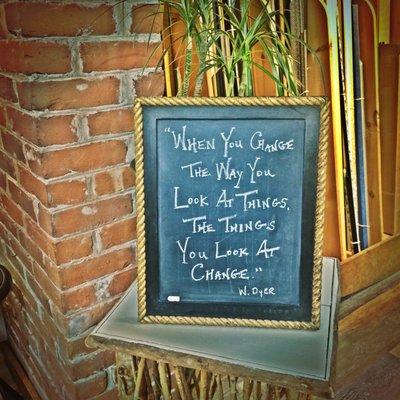 "When You Change
The Way You
Look At Things,
The Things
You Look At
Change."
W. Dyer